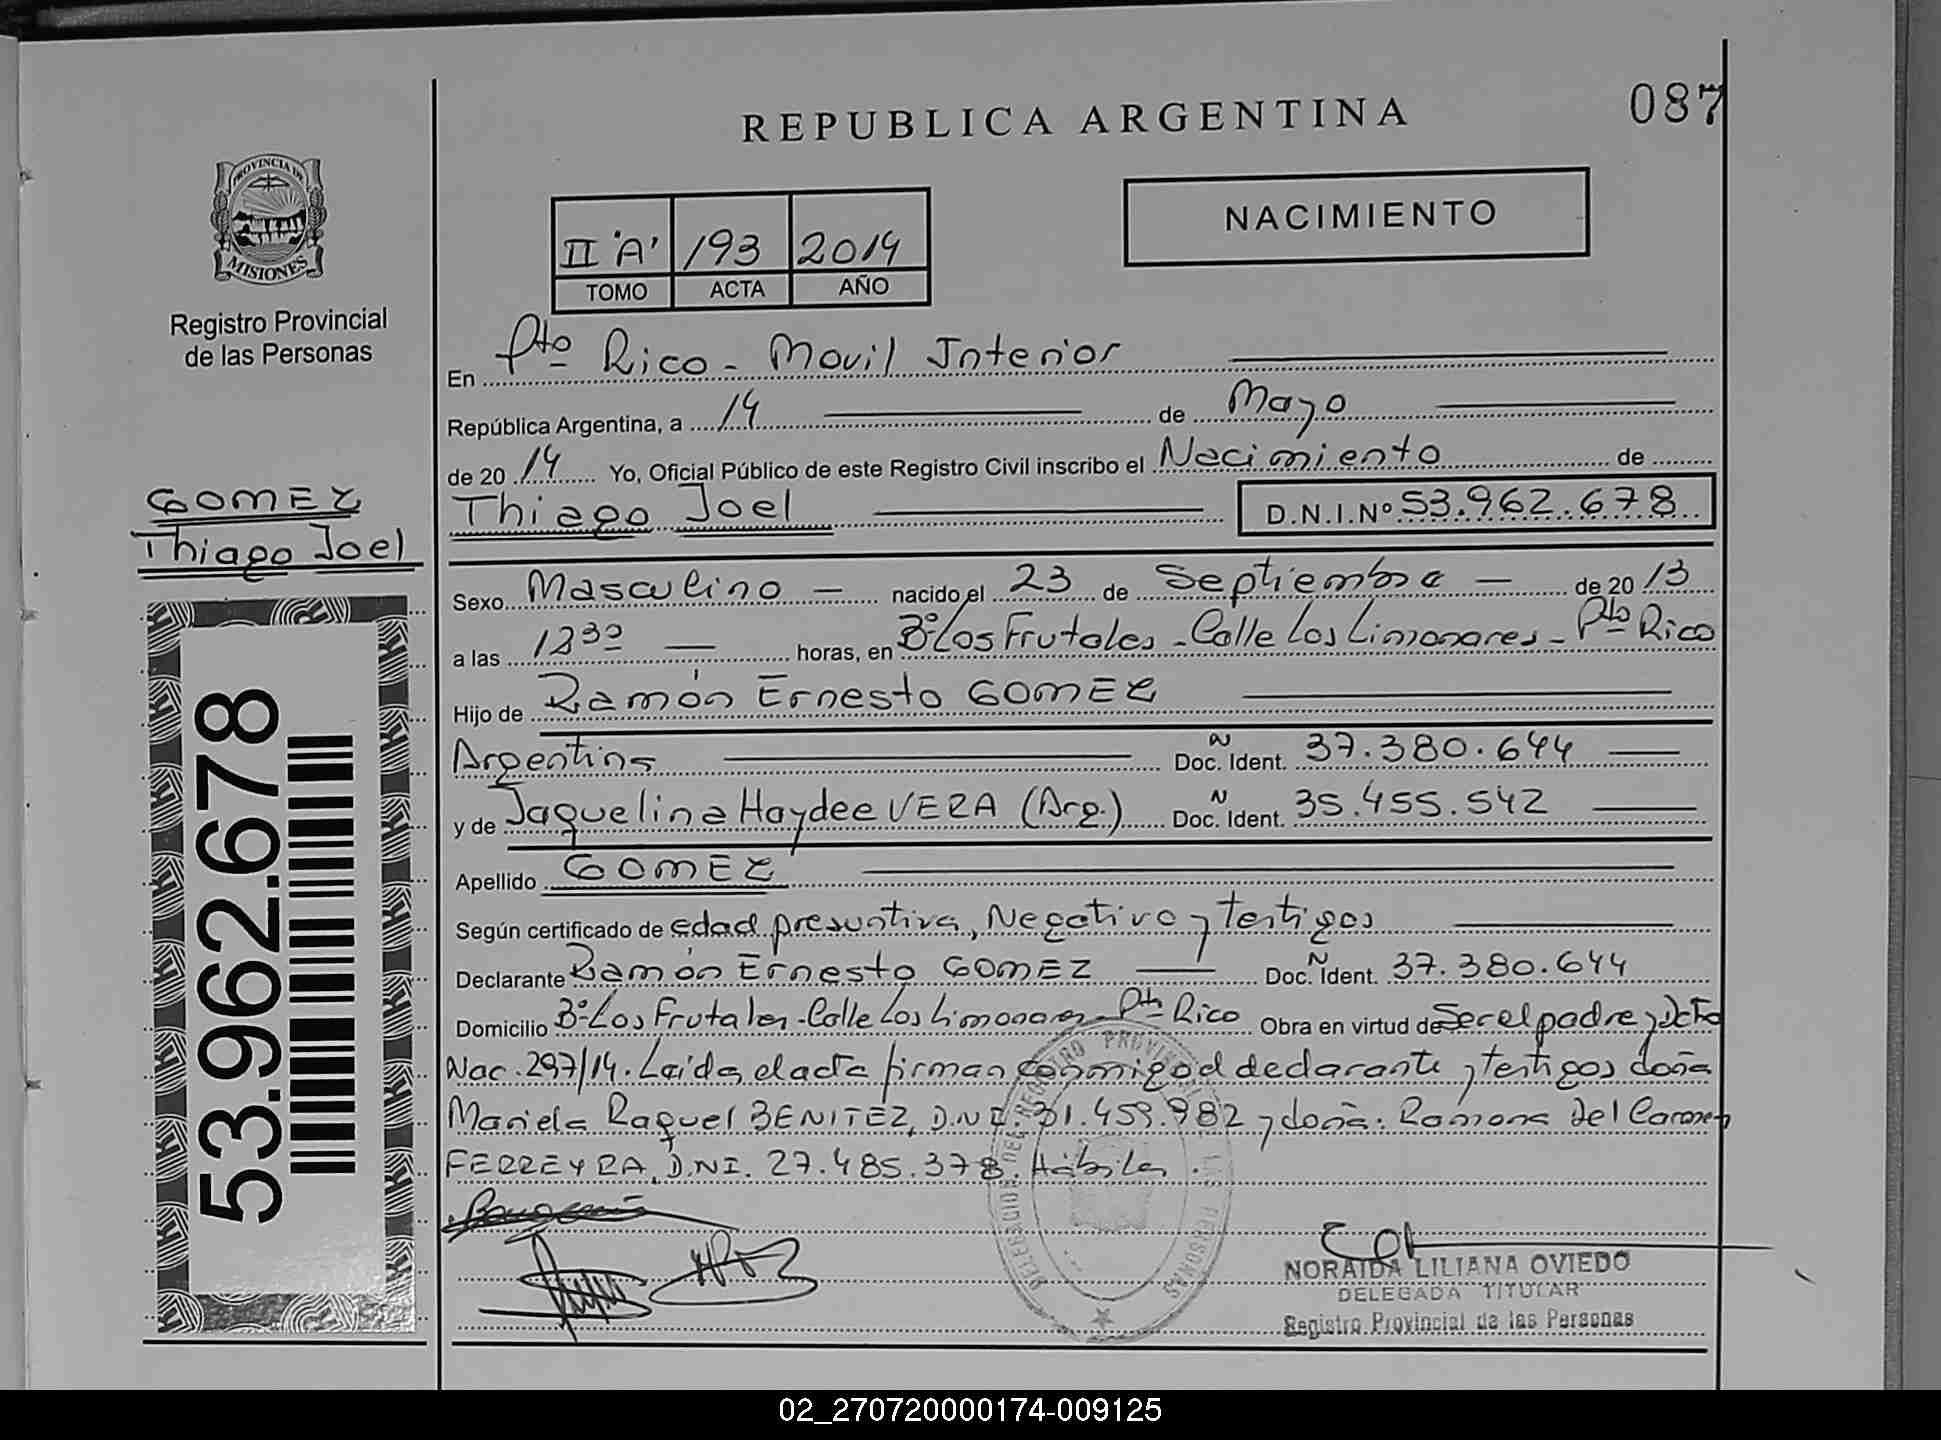 087
REPUBLICA ARGENTINA
PROVINCIA DE
MISIONES
Registro Provincial
de las Personas
II "A" 193 2014
TOMO ACTA AÑO
NACIMIENTO
En Pto Rico - Movil Interior
República Argentina, a 14 de Mayo
de 20 14 Yo, Oficial Público de este Registro Civil inscribo el Nacimiento de
Thiago Joel D.N.I.Nº 53.962.678
GOMEZ
Thiago Joel
53.962.678
Sexo Masculino nacido el 23 de Septiembre de 20 13
a las horas, en Bº Los Frutales - Calle Los Limonares - Pto Rico
Hijo de Ramón Ernesto GOMEZ
Argentina Doc. Ident. 37.380.644
y de Jaqueline Haydee VERA (Arg.) Doc. Ident. 35.455.542
Apellido GOMEZ
Según certificado de edad presuntiva, Negativo y testigos
Declarante Ramón Ernesto GOMEZ Doc. Ident. 37.380.644
Domicilio Bº Los Frutales - Calle Los Limonares - Pto Rico Obra en virtud de Ser el padre y Dcto
Nac. 297/14. Leída el acta firman conmigo el declarante y testigos doña
Mariela Raquel BENITEZ, D.N.I. 31.459.982 y doña: Ramona Del Carmen
FERREYRA, D.NI. 27.485.378. Hábiles.
DELEGACION DEL REGISTRO PROVINCIAL DE LAS PERSONAS
NORAIDA LILIANA OVIEDO
DELEGADA TITULAR
Registro Provincial de las Personas
02_270720000174-009125